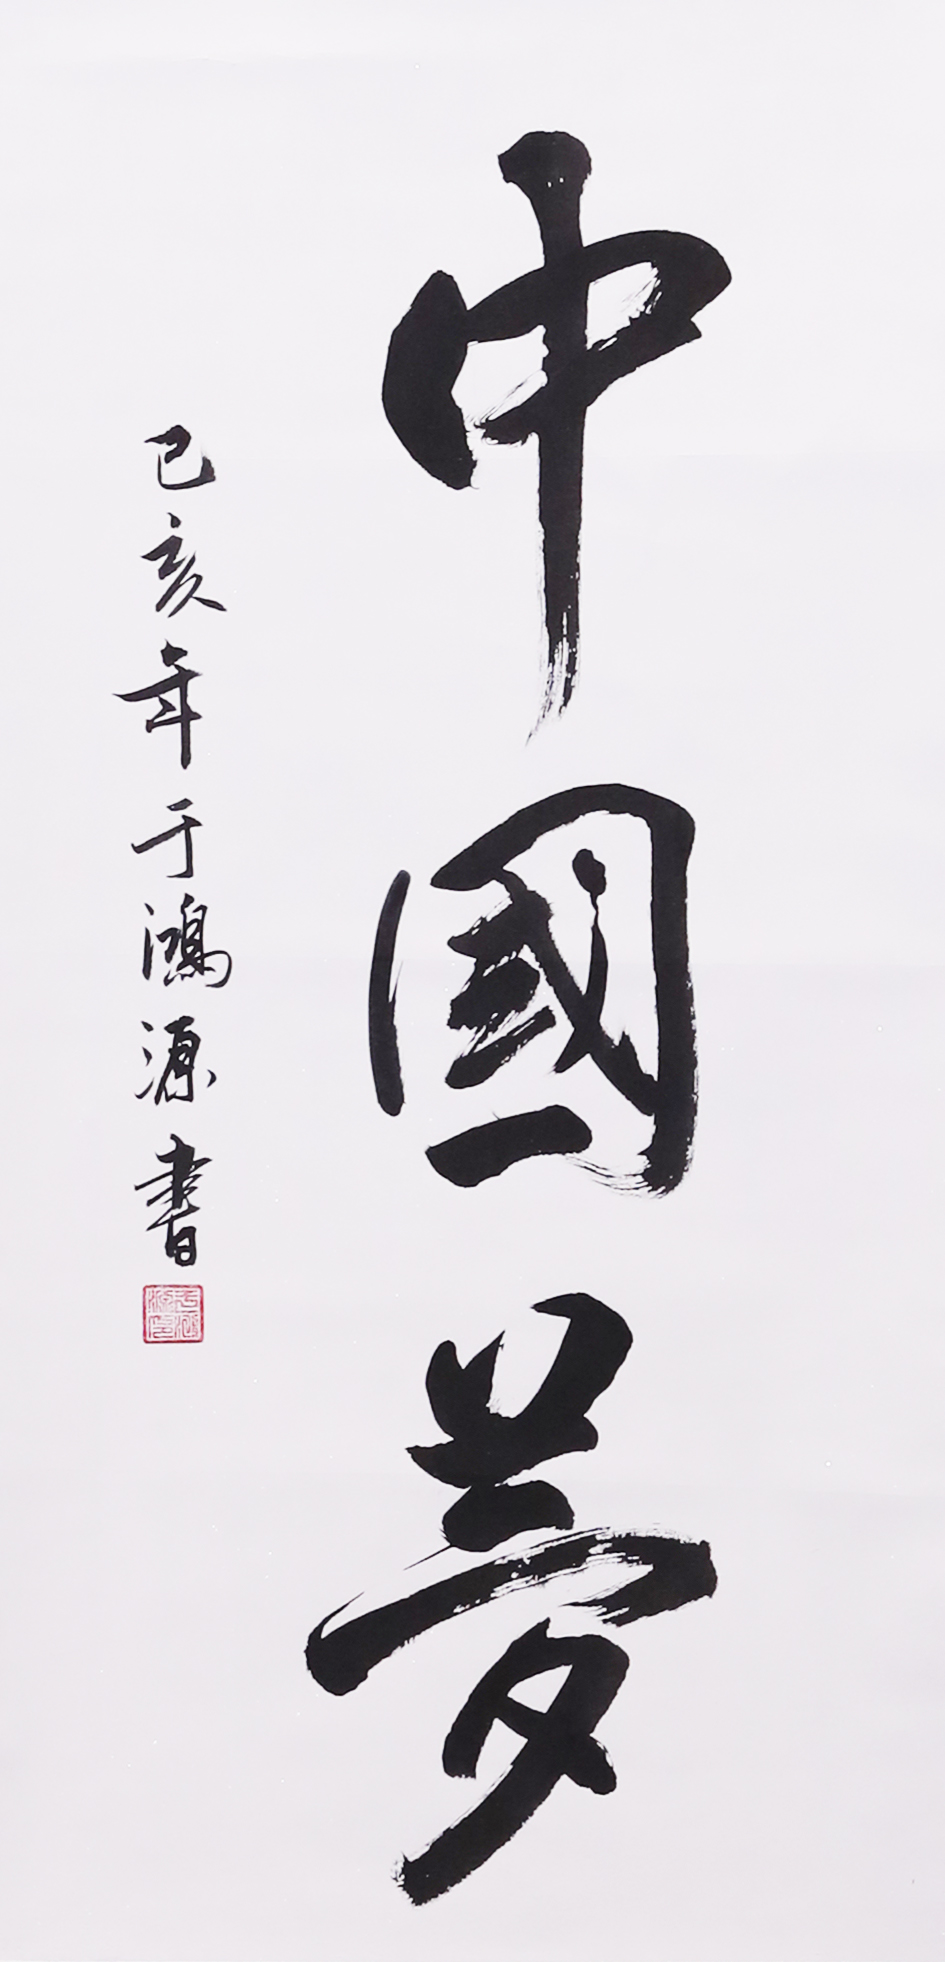 中國夢
己亥年于鴻源書